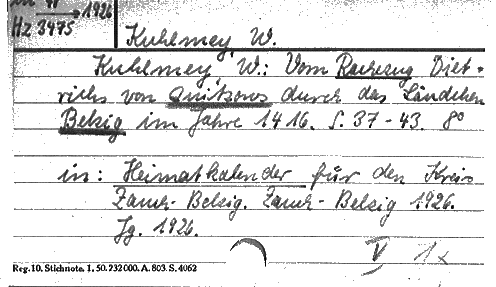 Hz 3475 1926
Kuhlmey, W.
Kuhlmey, W.: Vom Rachezug Diet-
richs von Quitzows durch das Ländchen
Belzig im Jahre 1416. S. 37-43. 8°
in: Heimatkalender für den Kreis
Zauch-Belzig. Zauch-Belzig 1926.
Jg. 1926.
V 1x
Reg. 10. Stichnote. I. 50. 232000. A. 803. S. 4062